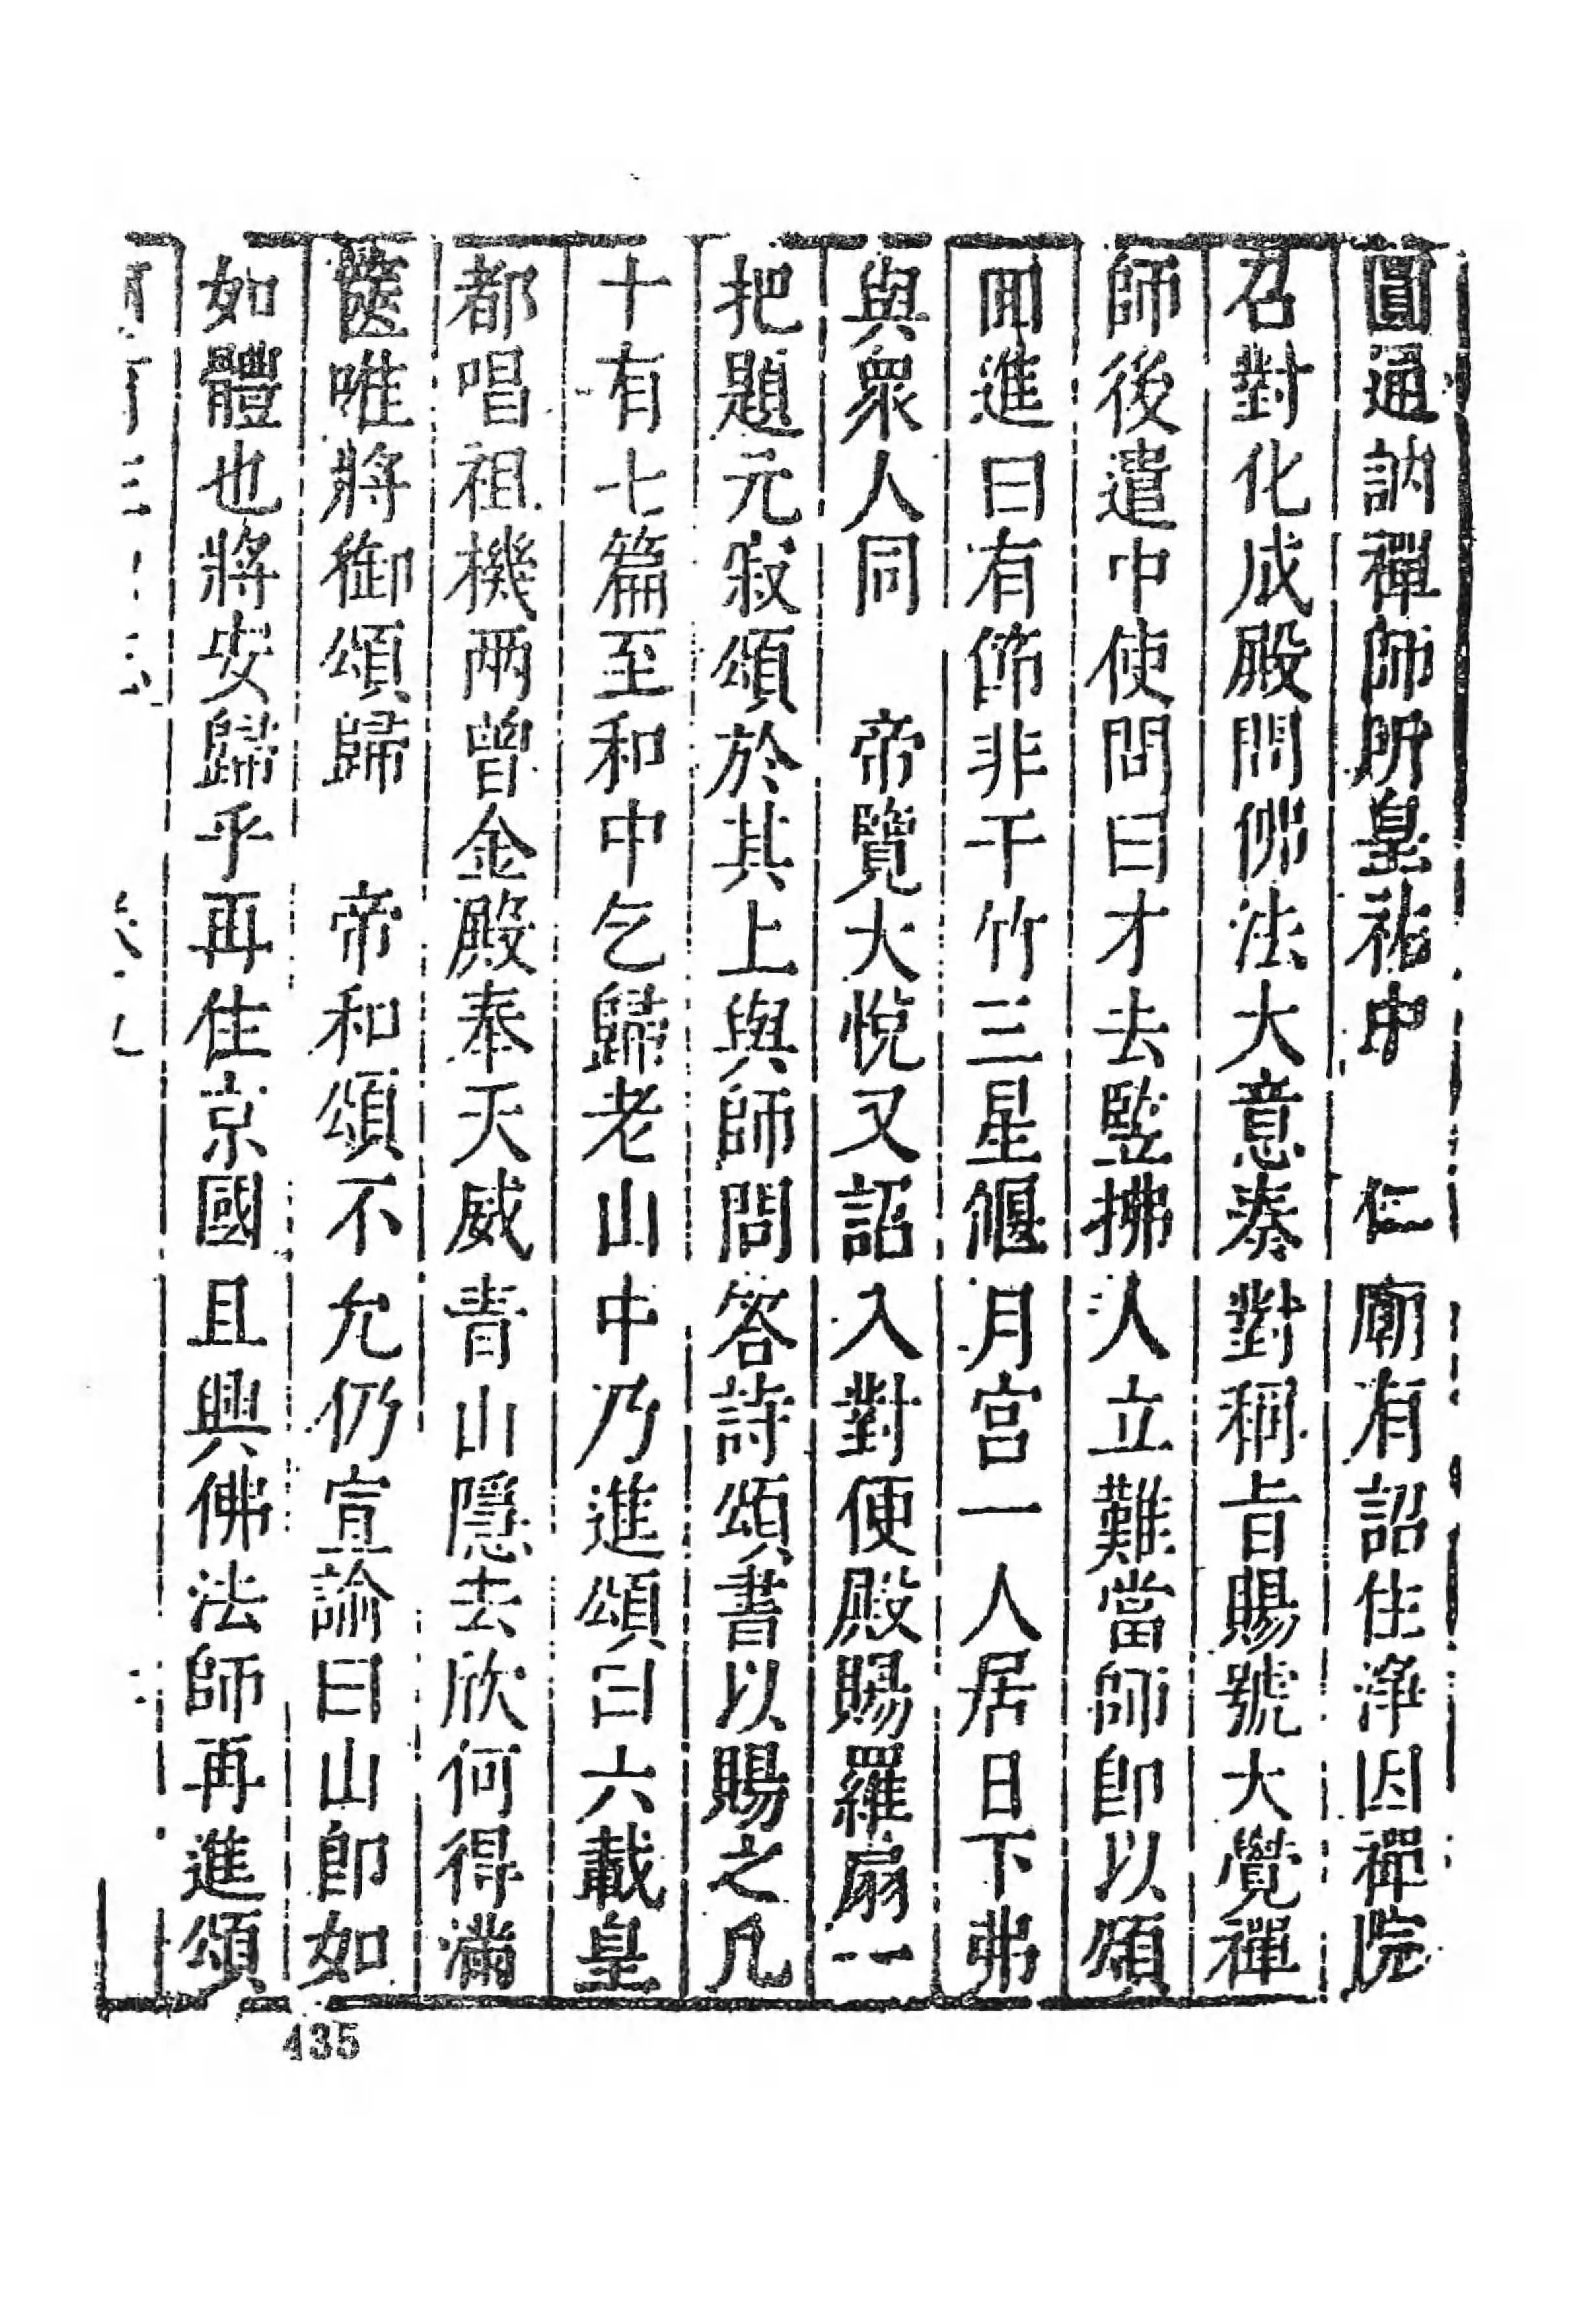 圓通訥禪師所皇祐中　仁廟有詔住淨因禪院
召對化成殿問佛法大意奏對稱旨賜號大覺禪
師後遣中使問曰才去豎拂人立難當師即以頌
回進曰有節非干竹三星偃月宮一人居日下弗
與衆人同　帝覽大悅又詔入對便殿賜羅扇一
把題元寂頌於其上與師問答詩頌書以賜之凡
十有七篇至和中乞歸老山中乃進頌曰六載皇
都唱祖機兩曾金殿奉天威青山隱去欣何得滿
篋唯將御頌歸　帝和頌不允仍宣諭曰山即如
如體也將安歸乎再住京國且興佛法師再進頌
435